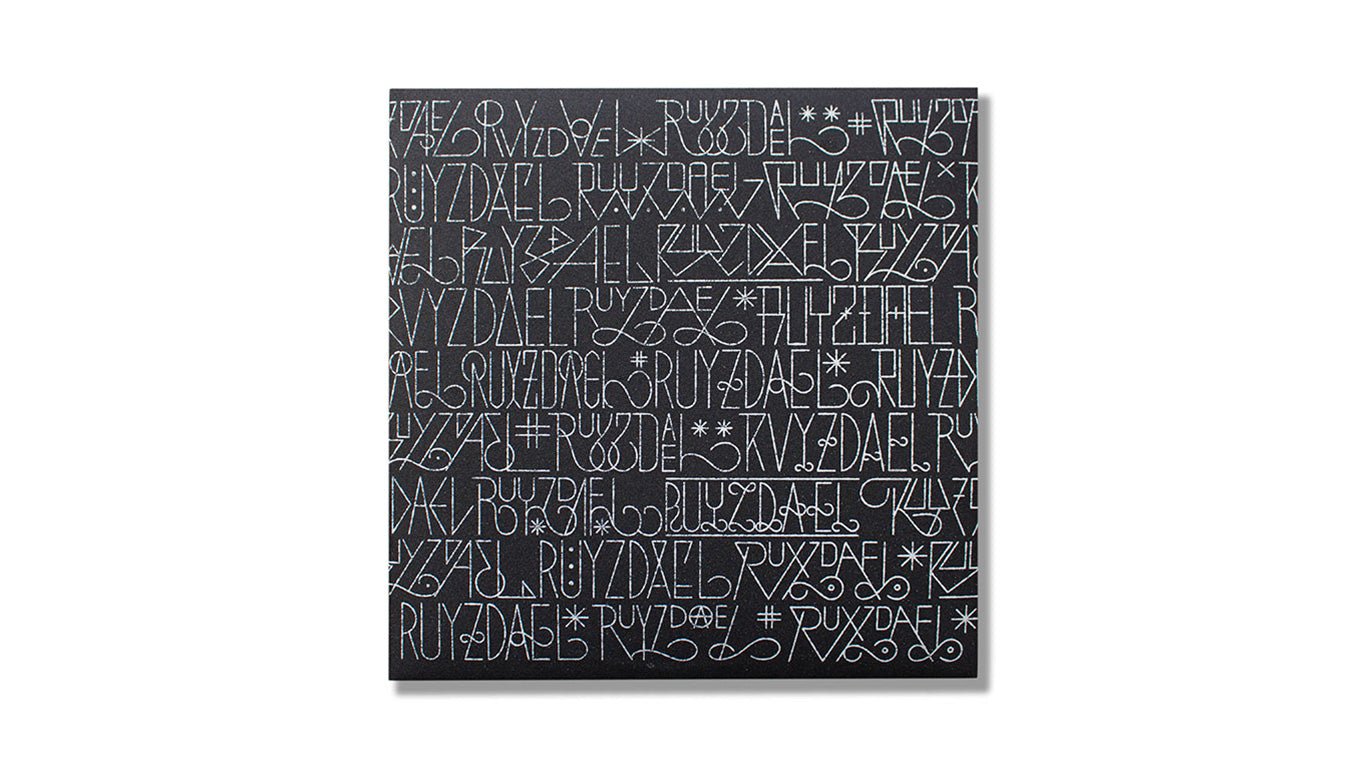 ZDAEL RVYZDAEL * RUYZDAEL ** # RUYZD
RUYZDAEL RUYZDAEL - RUYZDAEL × R
AEL RUYZDAEL RUYZDAEL RUYZDA
RVYZDAEL RUYZDAEL * RUYZDAEL R
AEL RUYZDAEL # RUYZDAEL * RUYZD
UYZDAEL # RUYZDAEL ** RVYZDAEL RU
DAEL RUYZDAEL RUYZDAEL RUYZD
YZDAEL RUYZDAEL RUYZDAEL * RUY
RUYZDAEL * RUYZDAEL # RUYZDAEL *